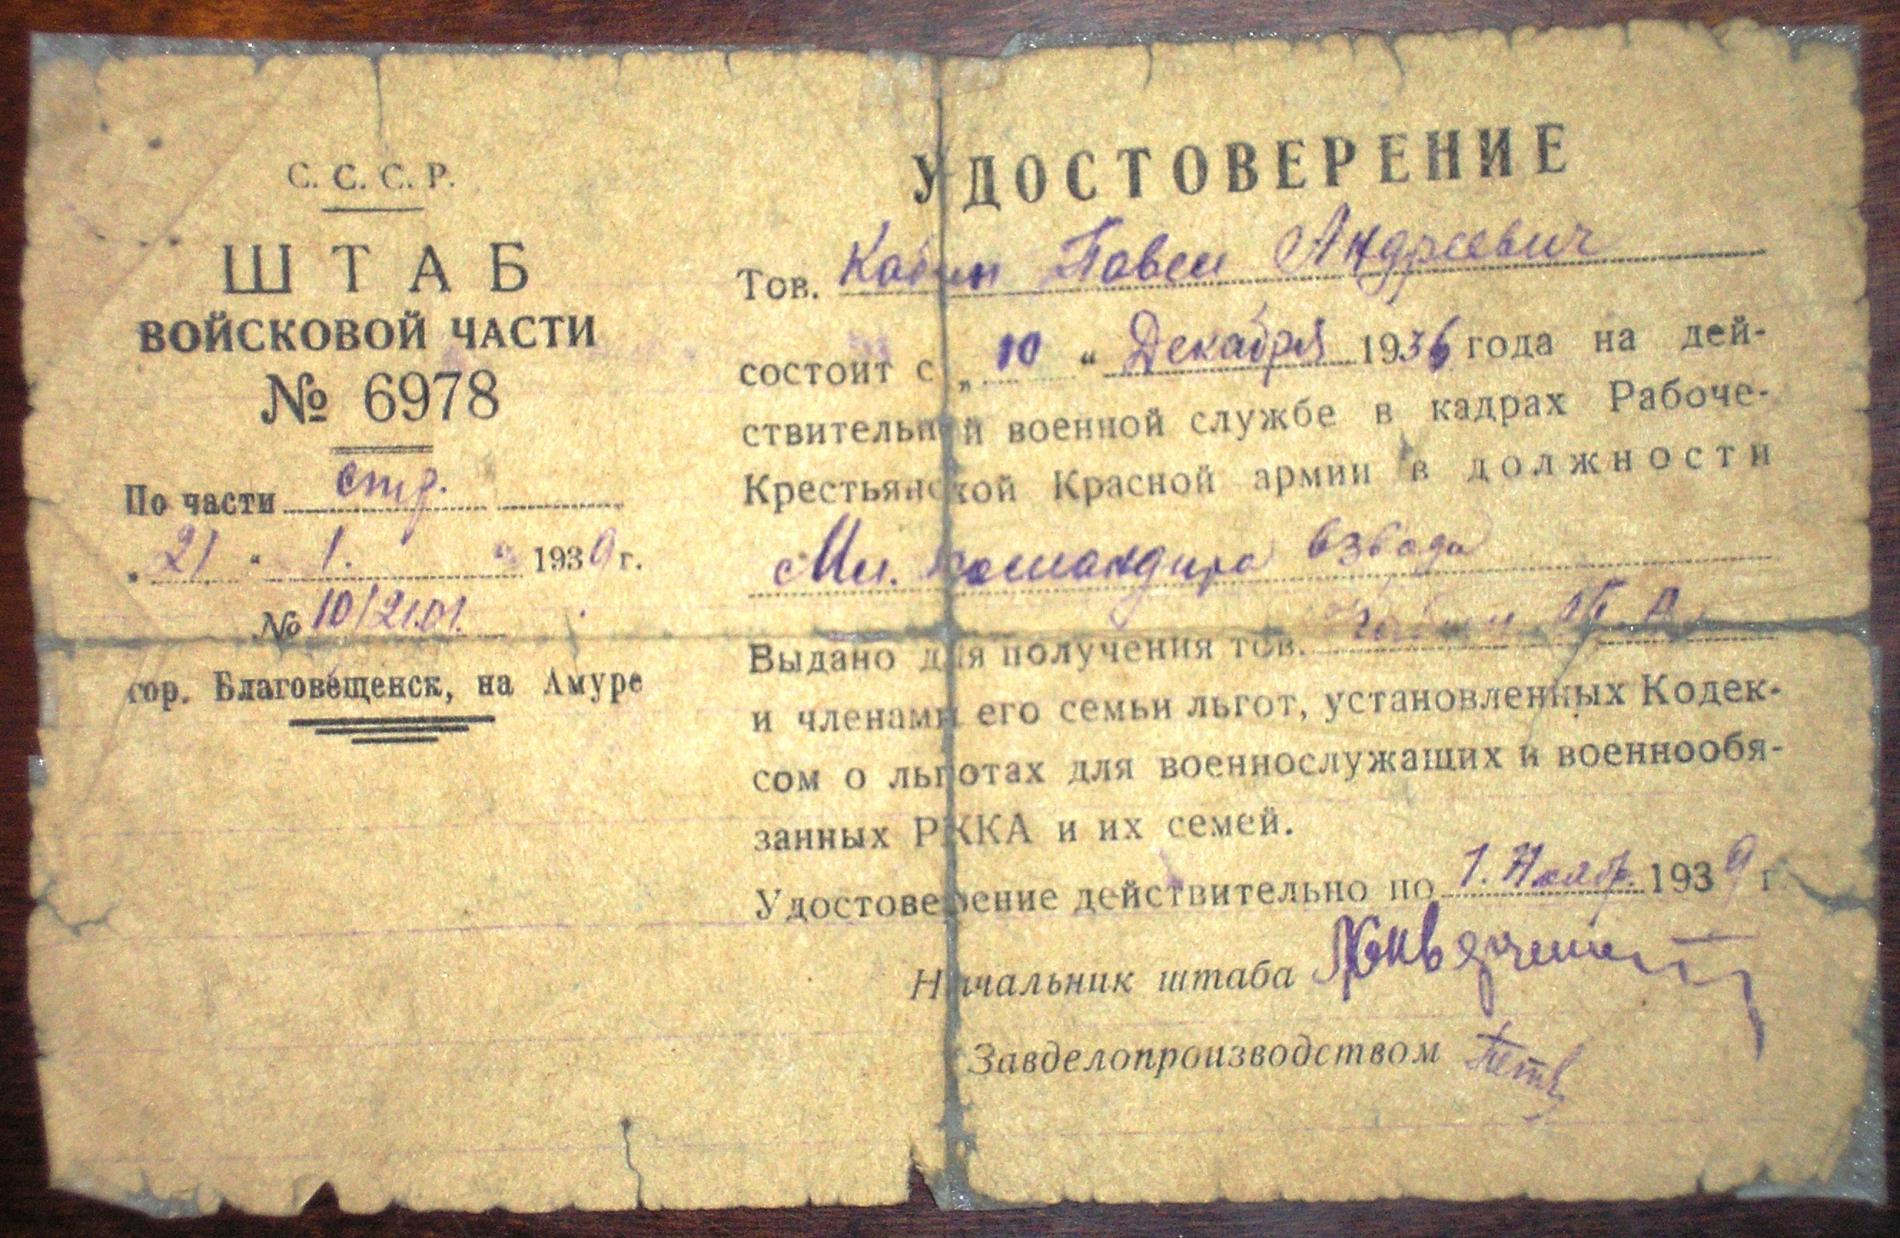 С. С. С. Р.
ШТАБ
ВОЙСКОВОЙ ЧАСТИ
№ 6978
По части стр.
„21“ 1. 1939 г.
№ 10/2101.
гор. Благовещенск, на Амуре
УДОСТОВЕРЕНИЕ
Тов. Кабин Павел Андреевич
состоит с „10“ Декабря 1936 года на дей-
ствительной военной службе в кадрах Рабоче-
Крестьянской Красной армии в должности
Мл. командира взвода
Выдано для получения тов. Кабин П. А.
и членами его семьи льгот, установленных Кодек-
сом о льготах для военнослужащих и военнообя-
занных РККА и их семей.
Удостоверение действительно по 1. Ноябр. 1939 г
Начальник штаба
Завделопроизводством